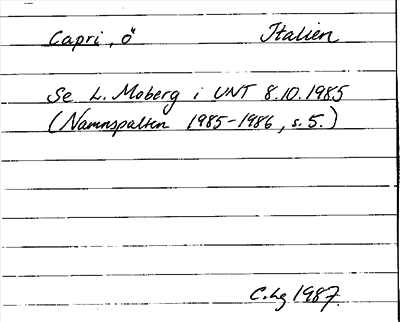 Capri, ö Italien
Se L. Moberg i UNT 8.10.1985
(Namnspalten 1985-1986, s. 5.)
C.hg 1987.